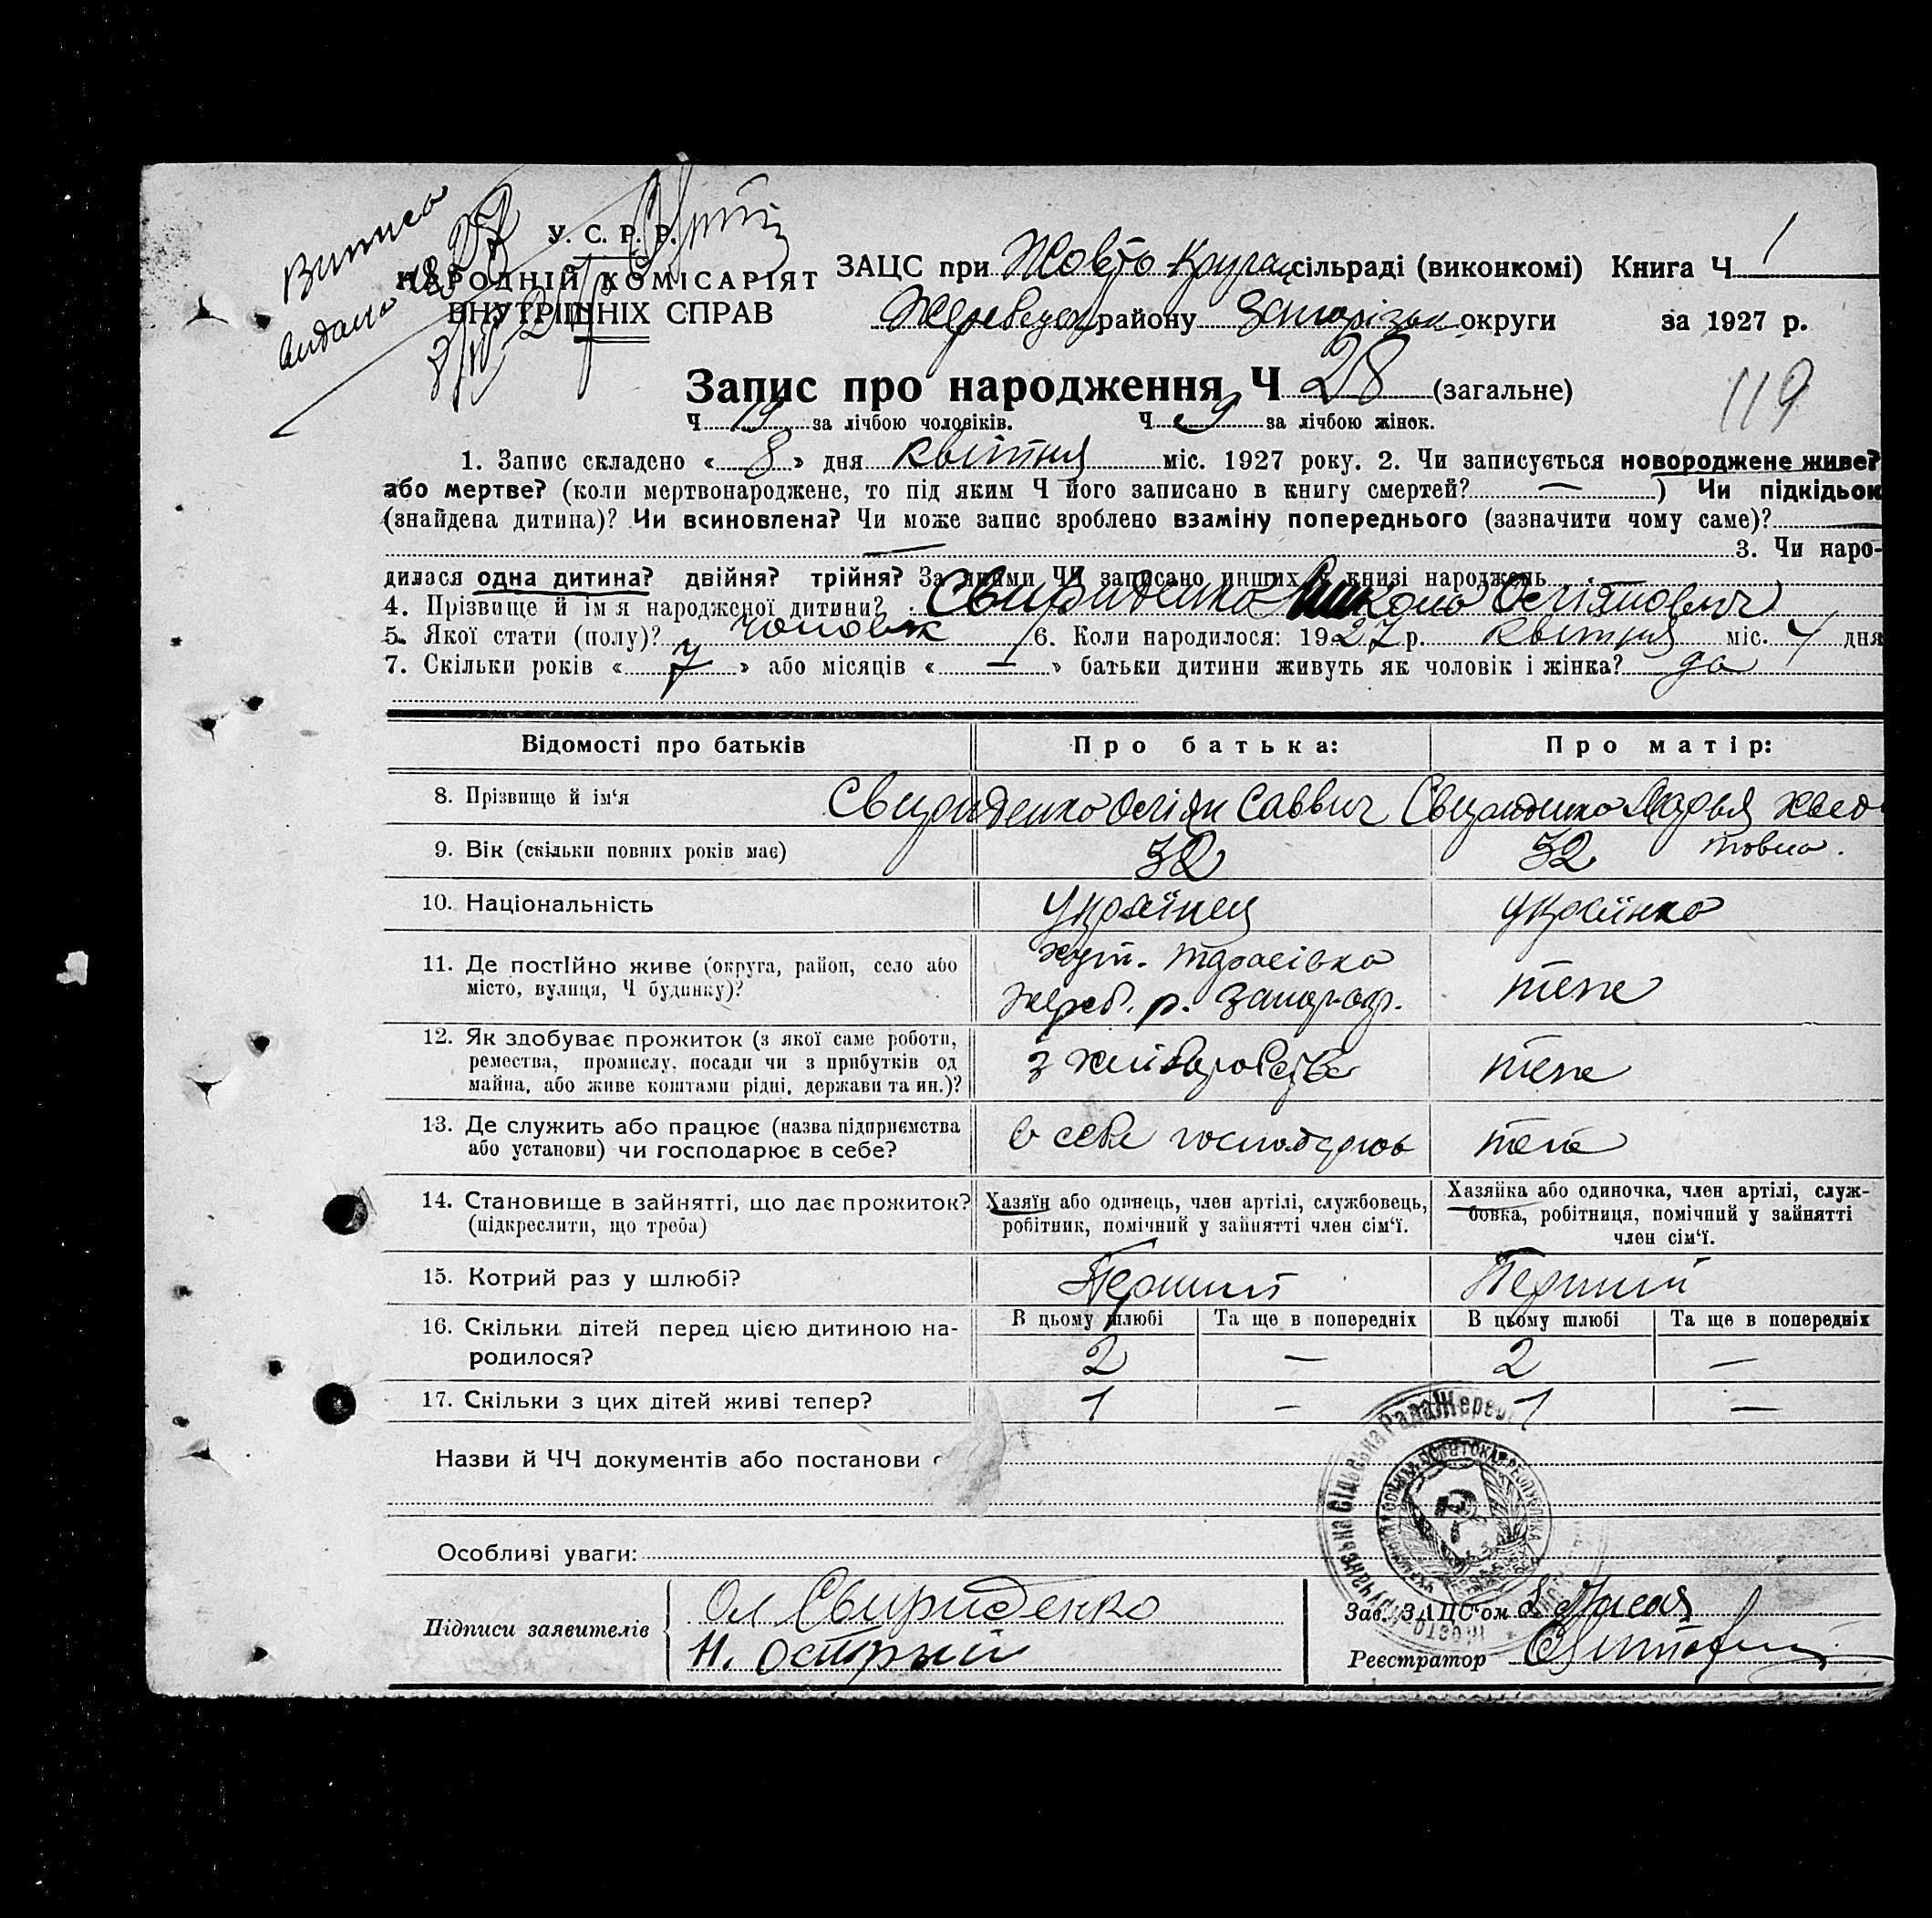 Випись
видана
У. С. Р. Р.
НАРОДНІЙ КОМІСАРІЯТ
ВНУТРІШНІХ СПРАВ
ЗАЦС при Жовто-Круган. сільраді (виконкомі) Книга Ч 1
Жеребецьк. району Запорізьк. округи за 1927 р.
Запис про народження Ч 28 (загальне)
119
Ч 19 за лічбою чоловіків. Ч 9 за лічбою жінок.
1. Запис складено « 8 » дня квітня міс. 1927 року. 2. Чи записується новороджене живе?
або мертве? (коли мертвонароджене, то під яким Ч його записано в книгу смертей? — ) Чи підкідьок
(знайдена дитина)? Чи всиновлена? Чи може запис зроблено взаміну попереднього (зазначити чому саме)? —
— 3. Чи наро-
дилася одна дитина? двійня? трійня? За якими ЧЧ записано инших в книзі народжень
4. Прізвище й ім'я народженої дитини? Свириденко
5. Якої стати (полу)? чоловік 6. Коли народилося: 1927 р. квітня міс. 4 дня
7. Скільки років « 7 » або місяців « — » батьки дитини живуть як чоловік і жінка? да
Відомості про батьків Про батька: Про матір:
8. Прізвище й ім'я Свириденко Оліян Саввич Свириденко Марья Хведо
товна.
9. Вік (скільки повних років має) 32 32
10. Національність Українец Українка
11. Де постійно живе (округа, район, село або
місто, вулиця, Ч будинку)?
хут. Тарасівка
Жереб. р. Запор. окр.
теж
12. Як здобуває прожиток (з якої саме роботи,
ремества, промислу, посади чи з прибутків од
майна, або живе коштами рідні, держави та ин.)?
з хліборобства теж
13. Де служить або працює (назва підприємства
або установи) чи господарює в себе?
в себе господарює теж
14. Становище в зайнятті, що дає прожиток?
(підкреслити, що треба)
Хазяїн або одинець, член артілі, службовець,
робітник, помічний у зайнятті член сім'ї.
Хазяйка або одиночка, член артілі, служ-
бовка, робітниця, помічний у зайнятті
член сім'ї.
15. Котрий раз у шлюбі? Перший Перший
16. Скільки дітей перед цією дитиною на-
родилося?
В цьому шлюбі Та ще в попередніх В цьому шлюбі Та ще в попередніх
2 — 2 —
17. Скільки з цих дітей живі тепер? 1 — 1 —
Назви й ЧЧ документів або постанови
Особливі уваги:
Підписи заявителів Ол Свириденко
Н. Острый
Зав. ЗАЦС'ом
Реєстратор